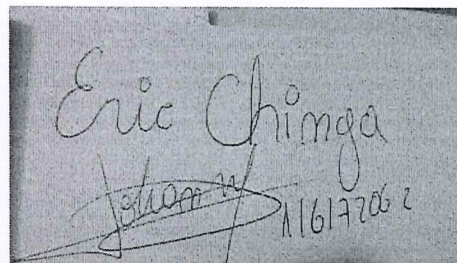 Eric Chinga
Johanny
1161772062